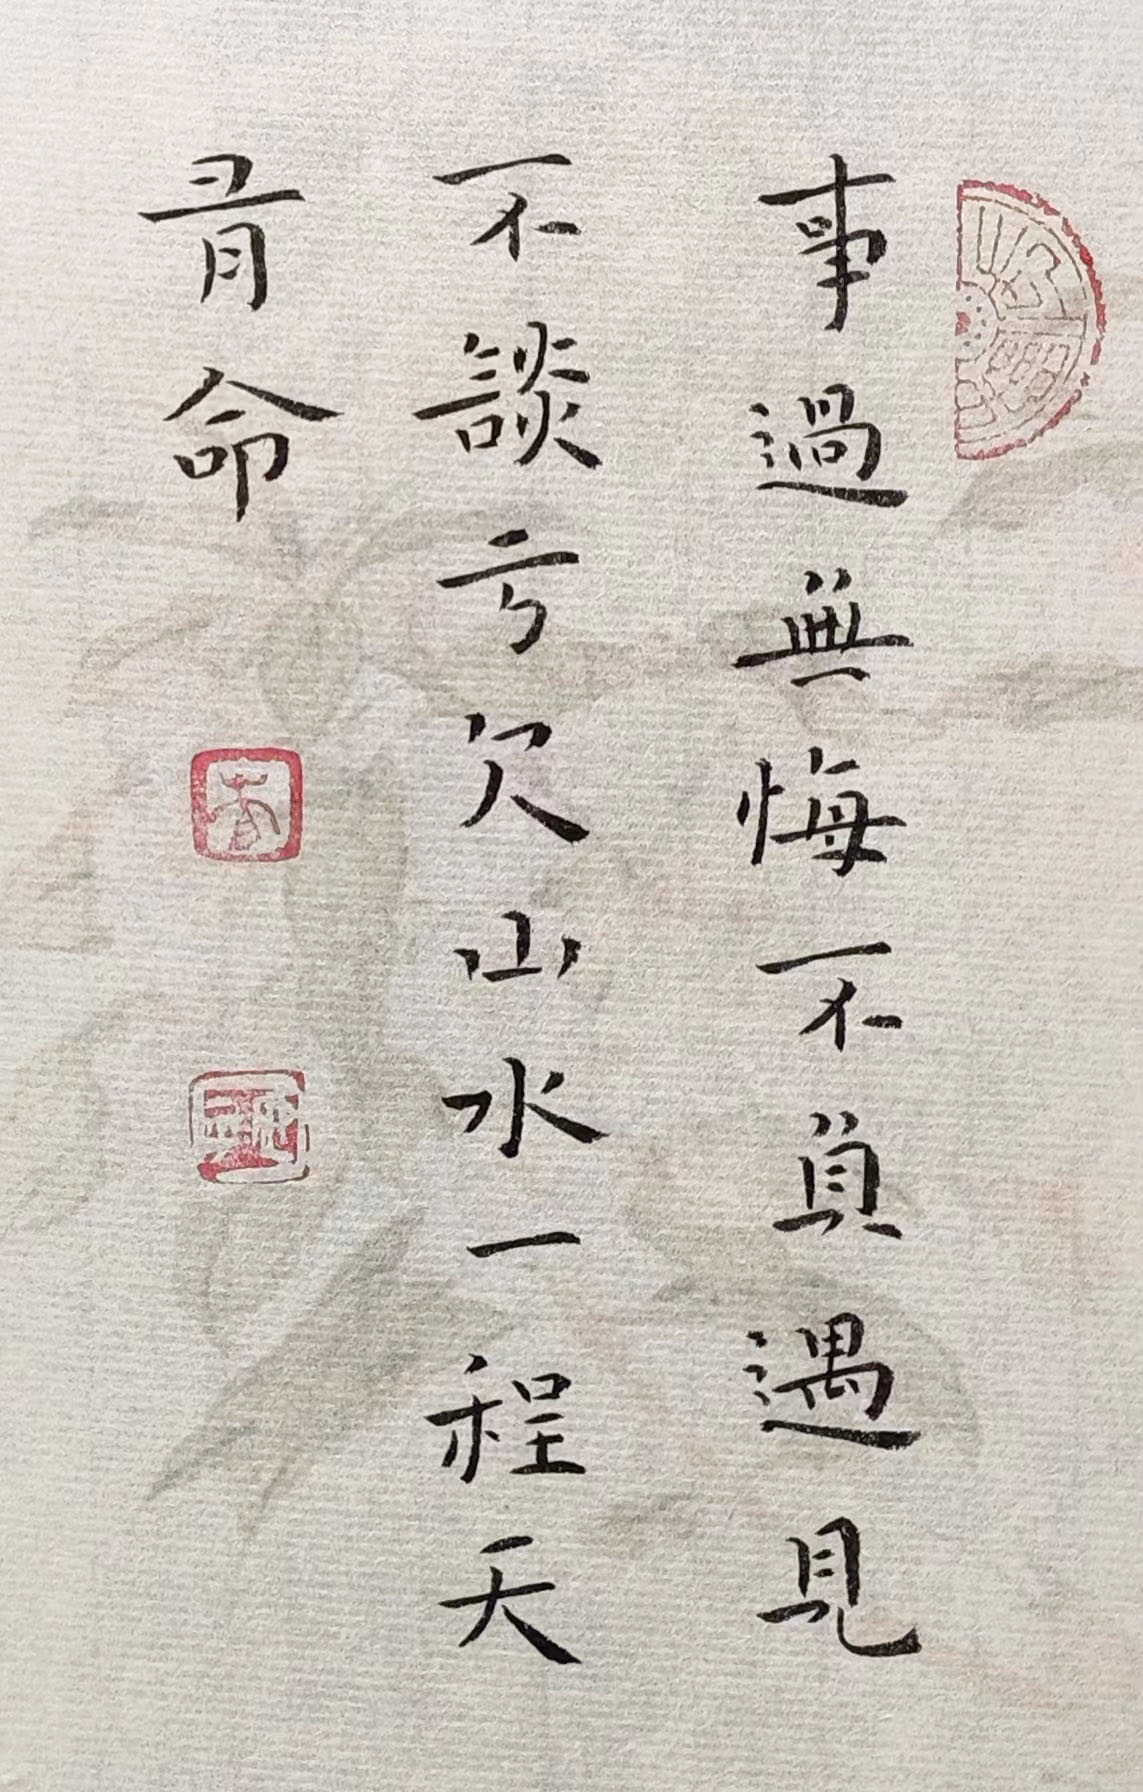 事過無悔不負遇見
不談亏欠山水一程天
命